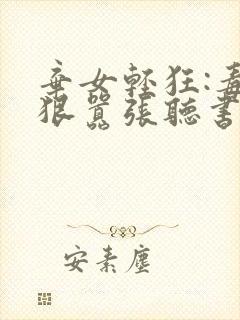 棄女輕狂:毒
狠囂張聽書
安素塵